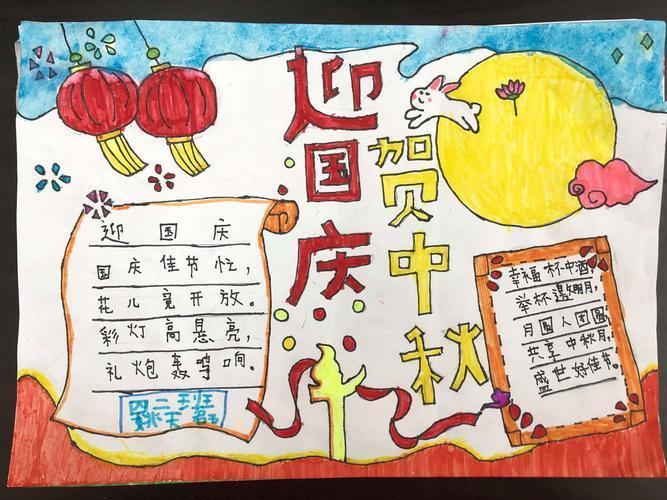 迎国庆
贺中秋
迎国庆
国庆佳节忙，
花儿竟开放。
彩灯高悬亮，
礼炮轰鸣响。
四二班
幸福杯中酒，
举杯邀明月，
月圆人团圆
共享中秋月，
盛世好佳节。